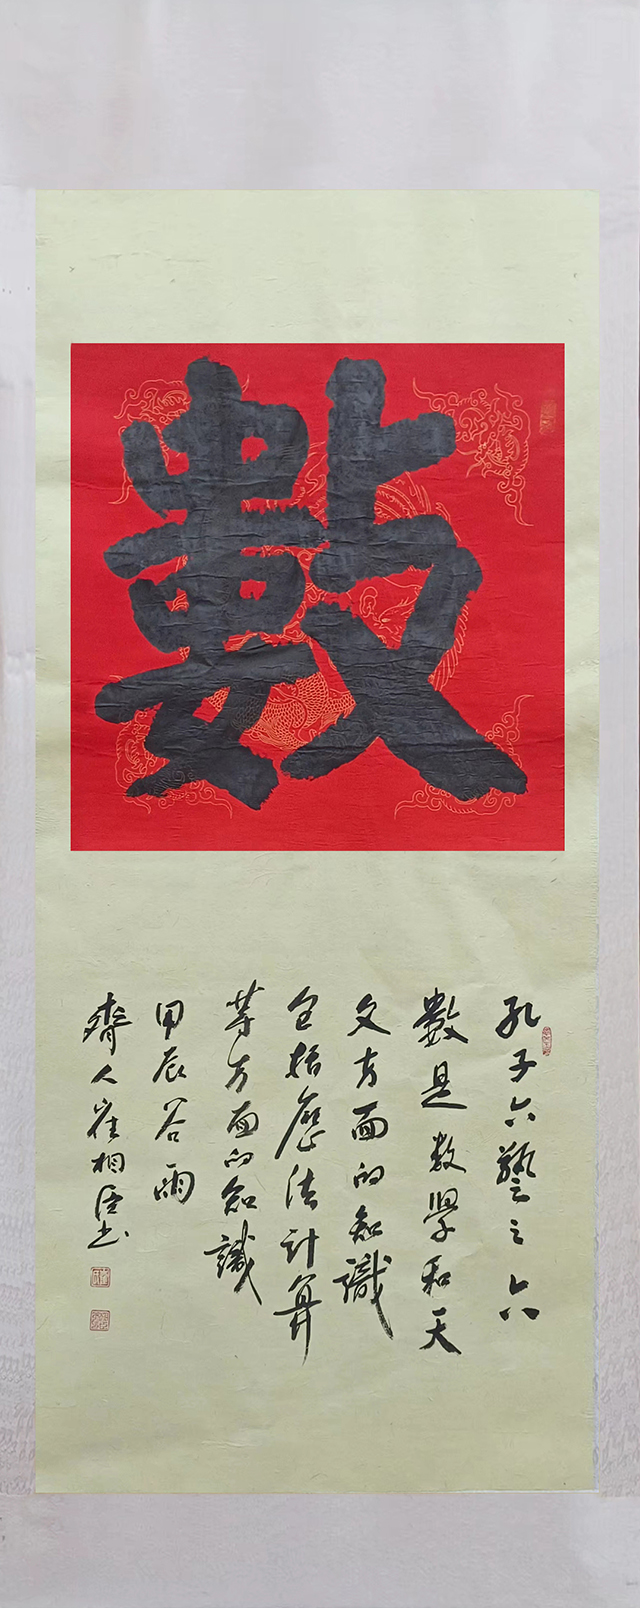 數
孔子六藝之六
數是数學和天
文方面的知識
包括曆法計算
等方面的知識
甲辰谷雨
齊人崔相臣书